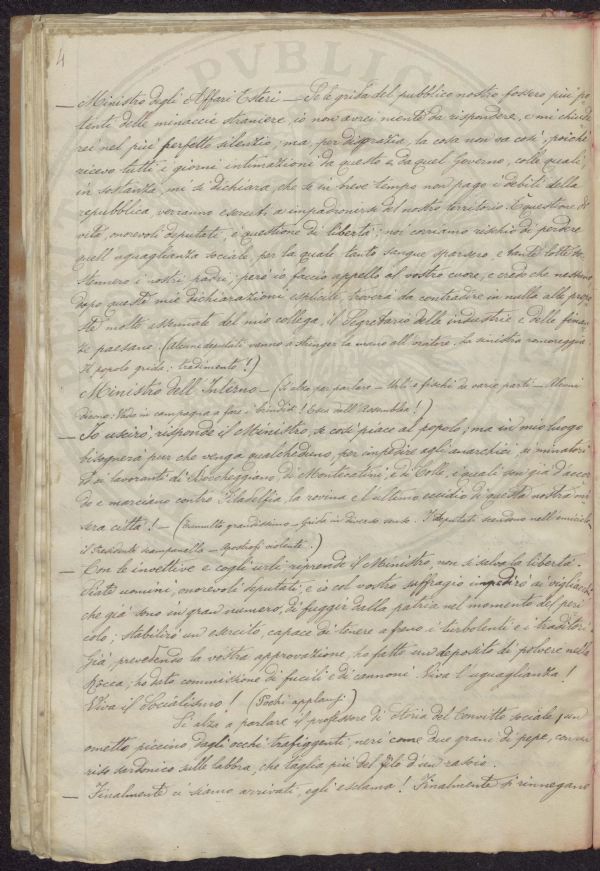 4
— Ministro degli Affari Esteri — Se le grida del pubblico nostro fossero più po-
tenti delle minaccie straniere, io non avrei niente da rispondere, e mi chiude-
rei nel più perfetto silenzio; ma, per disgrazia, la cosa non va così, poichè
ricevo tutti i giorni intimazioni da questo e da quel Governo, colle quali,
in sostanza, mi si dichiara, che se in breve tempo non pago i debiti della
repubblica verranno eserciti a impadronirsi del nostro territorio. È questione di
vita, onorevoli deputati, è questione di libertà; noi corriamo rischio di perdere
quell'uguaglianza sociale, per la quale tanto sangue sparsero, e tante lotte so-
stennero i nostri padri; però io faccio appello al vostro cuore, e credo che nessuno,
dopo queste mie dichiarazioni esplicite, troverà da contradire in nulla alle propo-
ste molto assennate del mio collega, il Segretario delle industrie e delle finan-
ze paesane. (Alcuni deputati vanno a stringer la mano all'oratore. La sinistra rumoreggia.
Il popolo grida: tradimento!)
Ministro dell'Interno — (Si alza per parlare — Urli e fischi da varie parti — Alcuni
dicono: Vada in campagna a fare i brindisi! Esca dall'Assemblea!)
— Io uscirò, risponde il Ministro, se così piace al popolo; ma in mio luogo
bisognerà pur che venga qualcheduno, per impedire agli anarchici, ai minatori
ed ai lavoranti di Boccheggiano, di Montecatini, e di Colle, i quali son già d'accor-
do e marciano contro Filadelfia, la rovina e l'ultimo eccidio di questa nostra mi-
sera città! — (Tumulto grandissimo — Grida in diverso senso. I deputati scendono nell'emiciclo
il Presidente scampanella — Apostrofi violente.)
— Con le invettive e cogli urli, riprende il Ministro, non si salva la libertà.
Siate uomini, onorevoli deputati, e io col vostro suffragio impedirò ai vigliacchi
che già sono in gran numero, di fuggir dalla patria nel momento del peri-
colo; stabilirò un esercito, capace di tenere a freno i turbolenti e i traditori.
Già, prevedendo la vostra approvazione, ho fatto un deposito di polvere nella
Rocca; ho dato commissione di fucili e di cannoni. Viva l'uguaglianza!
Viva il Socialismo! (Pochi applausi)
Si alza a parlare il professore di Storia del Convitto sociale; un
ometto piccino dagli occhi trafiggenti, neri come due grani di pepe, con un
riso sardonico sulle labbra, che taglia più del filo d'un rasoio.
— Finalmente ci siamo arrivati, egli esclama! Finalmente si rinnegano